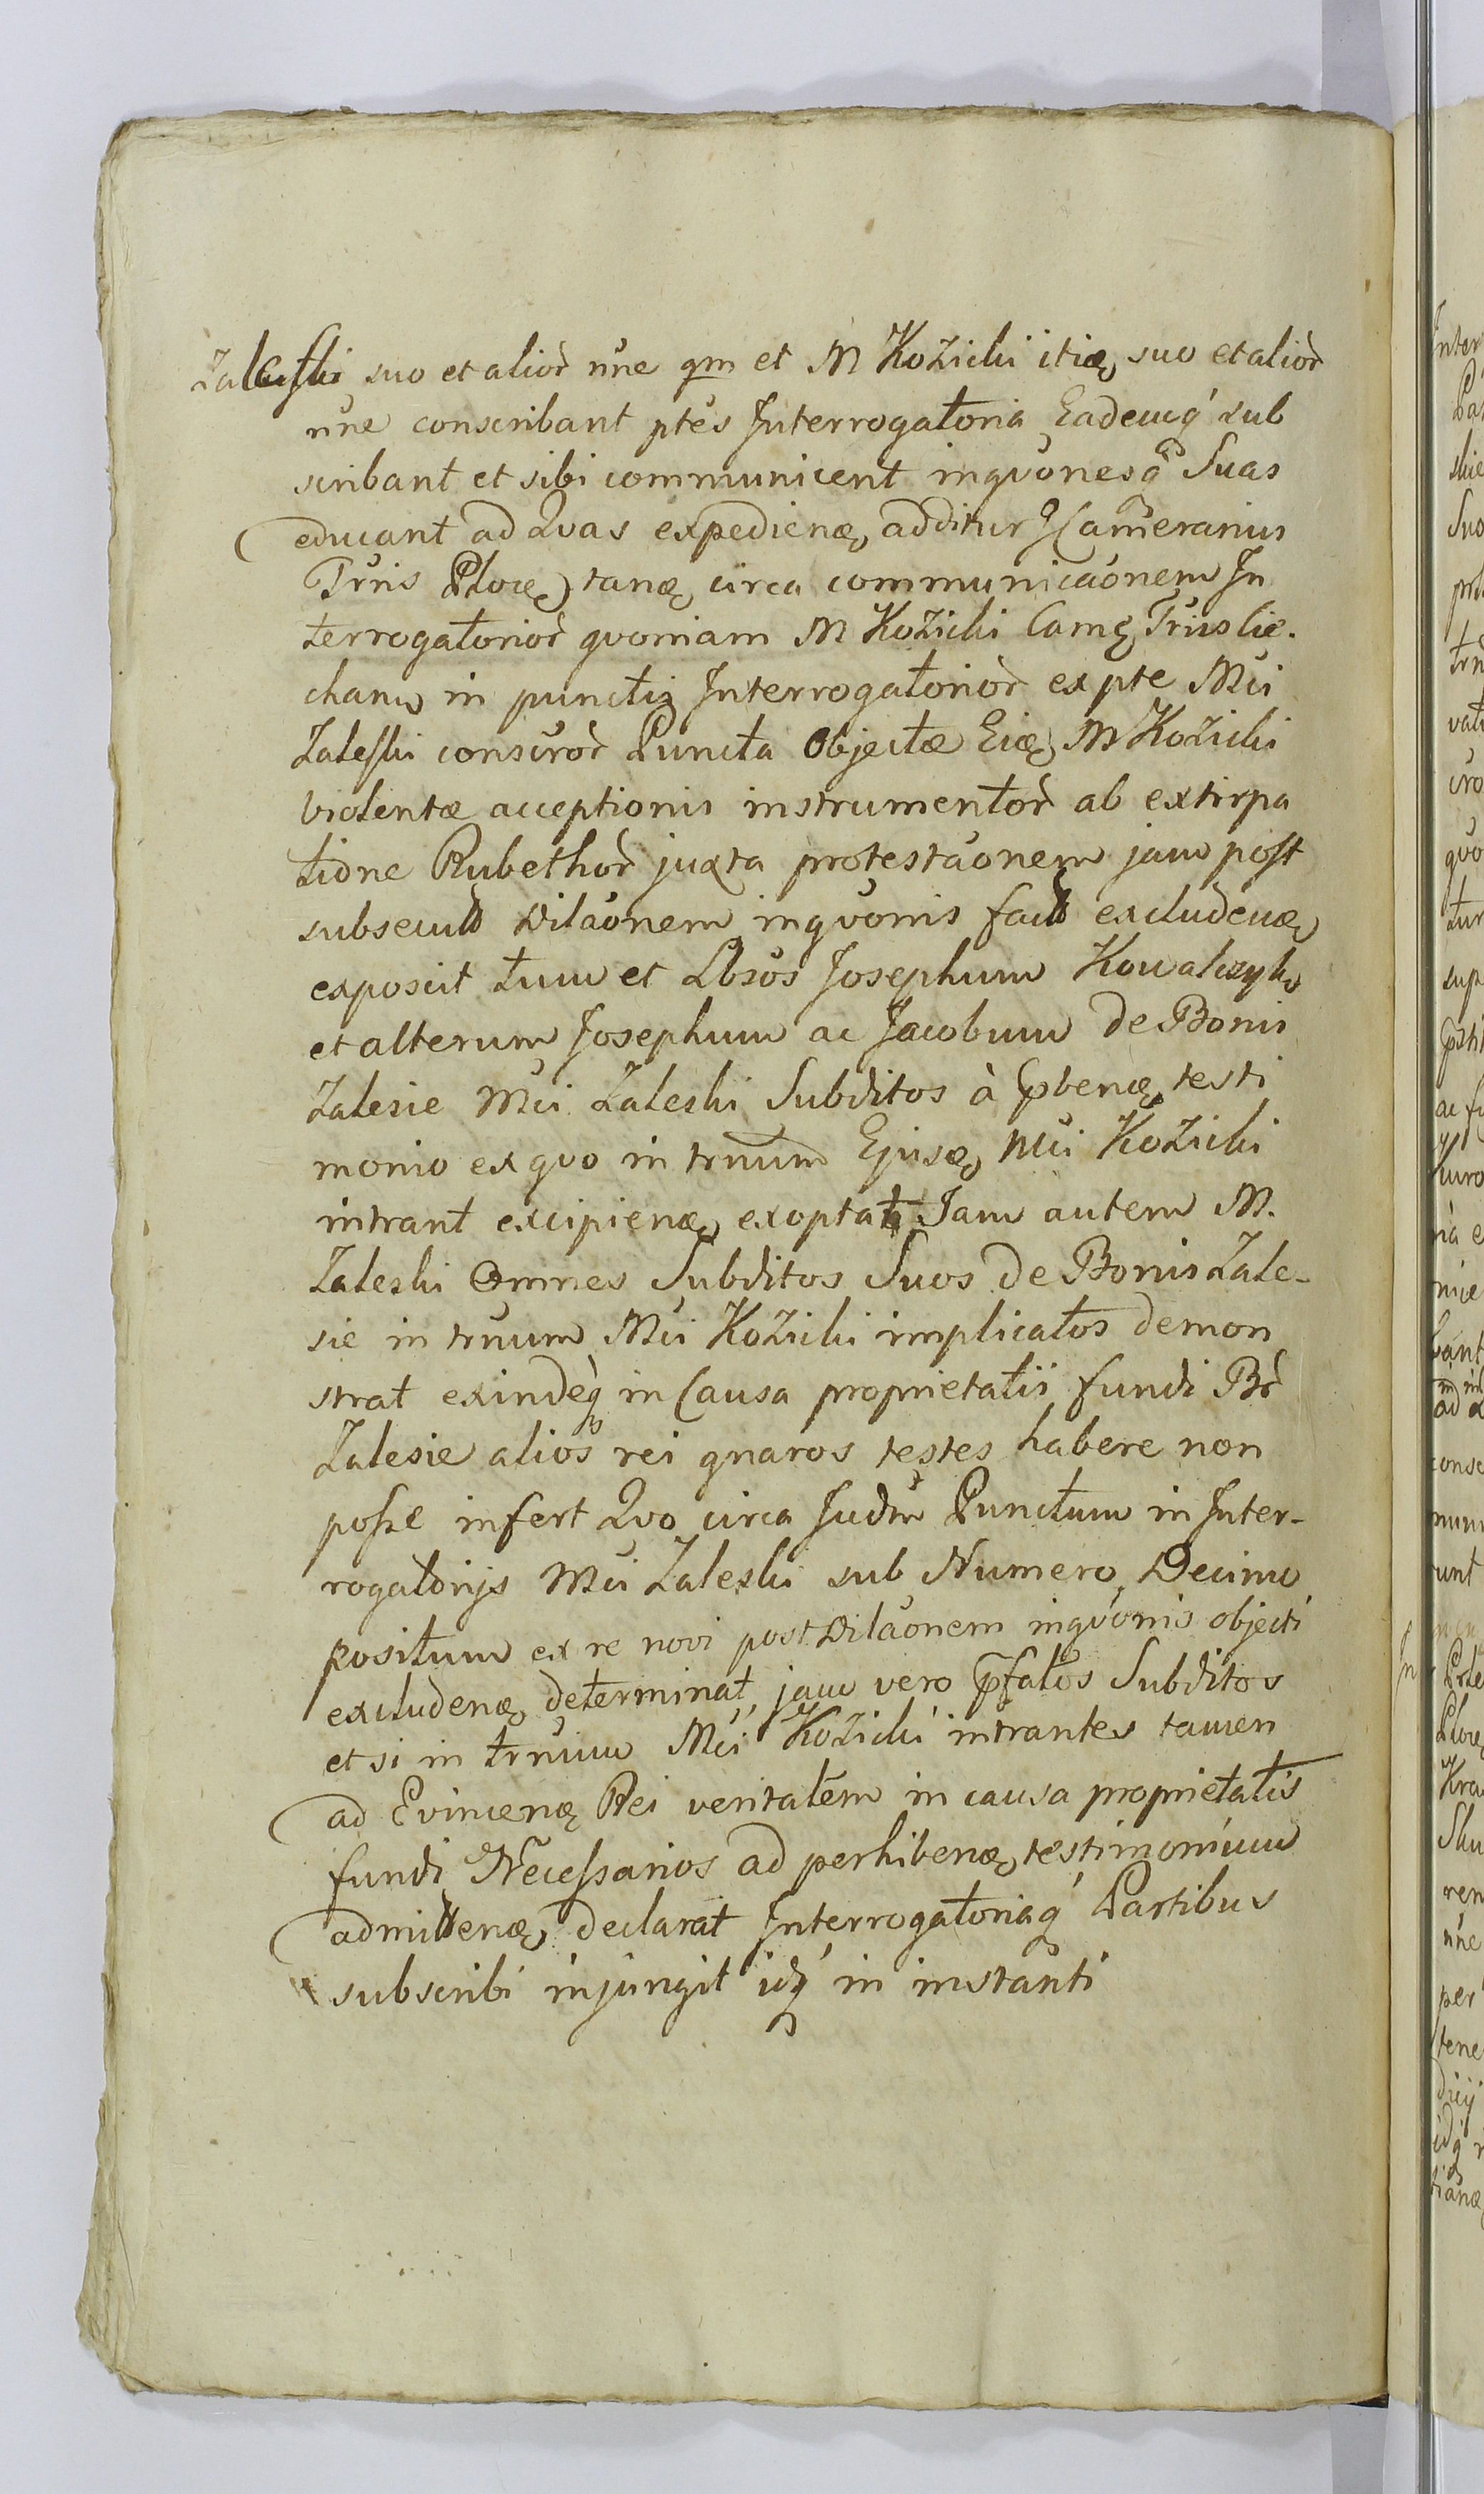 Zaleski suo et alior nne qm et M Kozicki itiaꝫ suo et alior
nne conscribant ptes Interrogatoria Eademq sub
scribant et sibi communicent inqvonesq Suas
educant ad Qvas expedienꝫ additur Camerarius
Trris Plocꝫ tanꝫ circa communicaonem In
terrogatorior qvoniam M Kozicki Camꝫ Trris Cie-
chanꝫ in punctis Interrogatorior ex pte Mci
Zaleski conscror Puncta Objectæ Eiꝫ M Kozicki
violentæ acceptionis instrumentor ab extirpa
tione Rubethor juxta protestaonem jam post
subsecutt Dilaonem inqvonis fact excludenꝫ
exposcit tum et Lbsos Josephum Kowalczyk
et alterum Josephum ac Jacobum de Bonis
Zalesie Mci Zaleski Subditos à phbenꝫ testi
monio ex qvo in trnum Ejusꝫ Mci Kozicki
intrant excipienꝫ exoptat Iam autem M.
Zaleski Omnes Subditos Suos de Bonis Zale-
sie in trnum Mci Kozicki implicatos demon
strat exindeq in Causa proprietatis fundi Br
Zalesie alios rei gnaros testes habere non
posse infert Qvo circa Judm Punctum in Inter-
rogatorijs Mci Zaleski sub Numero Decimo
positum ex re novi post Dilaonem inqvonis objecti
excludenꝫ determinat jam vero pfatos Subditos
et si in trnum Mci Kozicki intrantes tamen
ad Evincenꝫ Rei veritatem in causa proprietatis
fundi Necessarios ad perhibenꝫ testimonium
admittenꝫ declarat Interrogatoriaq Partibus
subscribi injungit idq in instanti